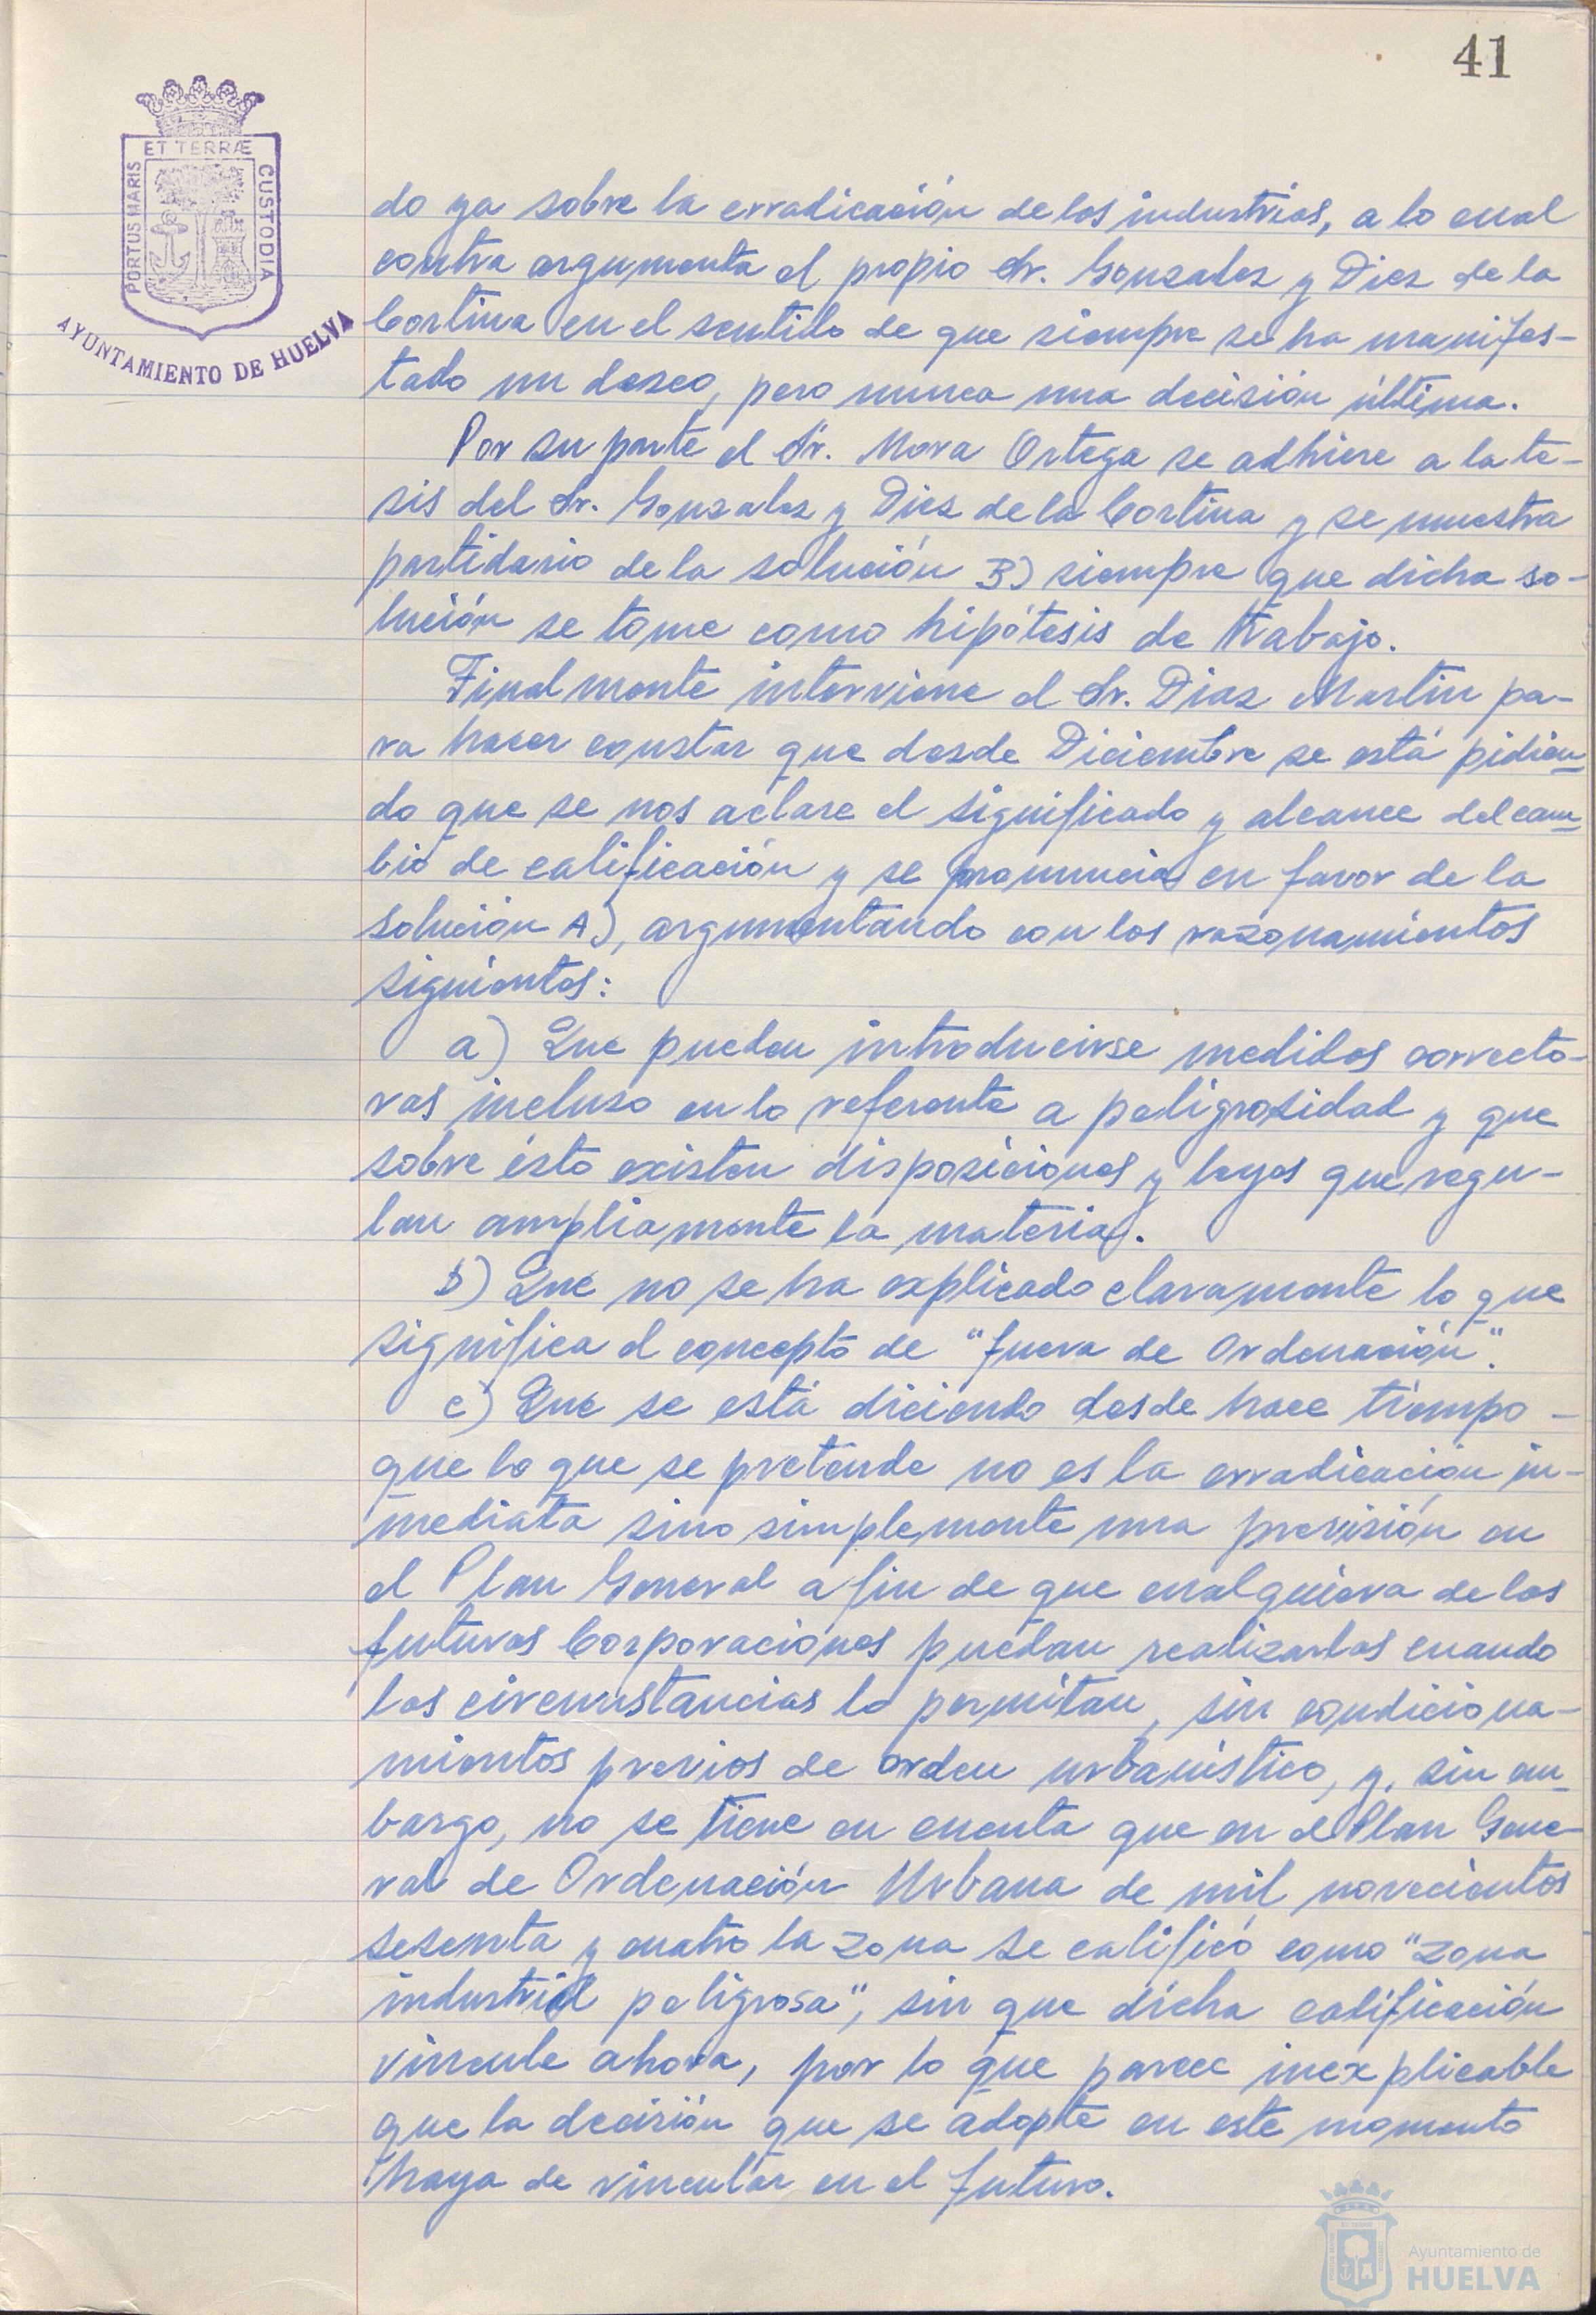 41
ET TERRÆ
PORTUS MARIS
CUSTODIA
AYUNTAMIENTO DE HUELVA
do ya sobre la erradicación de las industrias, a lo cual
contra argumenta el propio Sr. Gonzalez y Diez de la
Cortina en el sentido de que siempre se ha manifes-
tado un deseo, pero nunca una decisión última.
Por su parte el Sr. Mora Ortega se adhiere a la te-
sis del Sr. Gonzalez y Diez de la Cortina y se muestra
partidario de la solución B) siempre que dicha so-
lución se tome como hipótesis de trabajo.
Finalmente interviene el Sr. Diaz Martin pa-
ra hacer constar que desde Diciembre se está pidien-
do que se nos aclare el significado y alcance del cam-
bio de calificación y se pronuncia en favor de la
solución A), argumentando con los razonamientos
siguientes:
a) Que pueden introducirse medidas correcto-
ras incluso en lo referente a peligrosidad y que
sobre ésto existen disposiciones y leyes que regu-
lan ampliamente la materia.
b) Que no se ha explicado claramente lo que
significa el concepto de "fuera de Ordenación".
c) Que se está diciendo desde hace tiempo -
que lo que se pretende no es la erradicación in-
mediata sino simplemente una previsión en
el Plan General a fin de que cualquiera de las
futuras Corporaciones puedan realizarlas cuando
las circunstancias lo permitan, sin condiciona-
mientos previos de orden urbanístico, y, sin em-
bargo, no se tiene en cuenta que en el Plan Gene-
ral de Ordenación Urbana de mil novecientos
sesenta y cuatro la zona se calificó como "zona
industrial peligrosa", sin que dicha calificación
vincule ahora, por lo que parece inexplicable
que la decisión que se adopte en este momento
haya de vincular en el futuro.
Ayuntamiento de
HUELVA